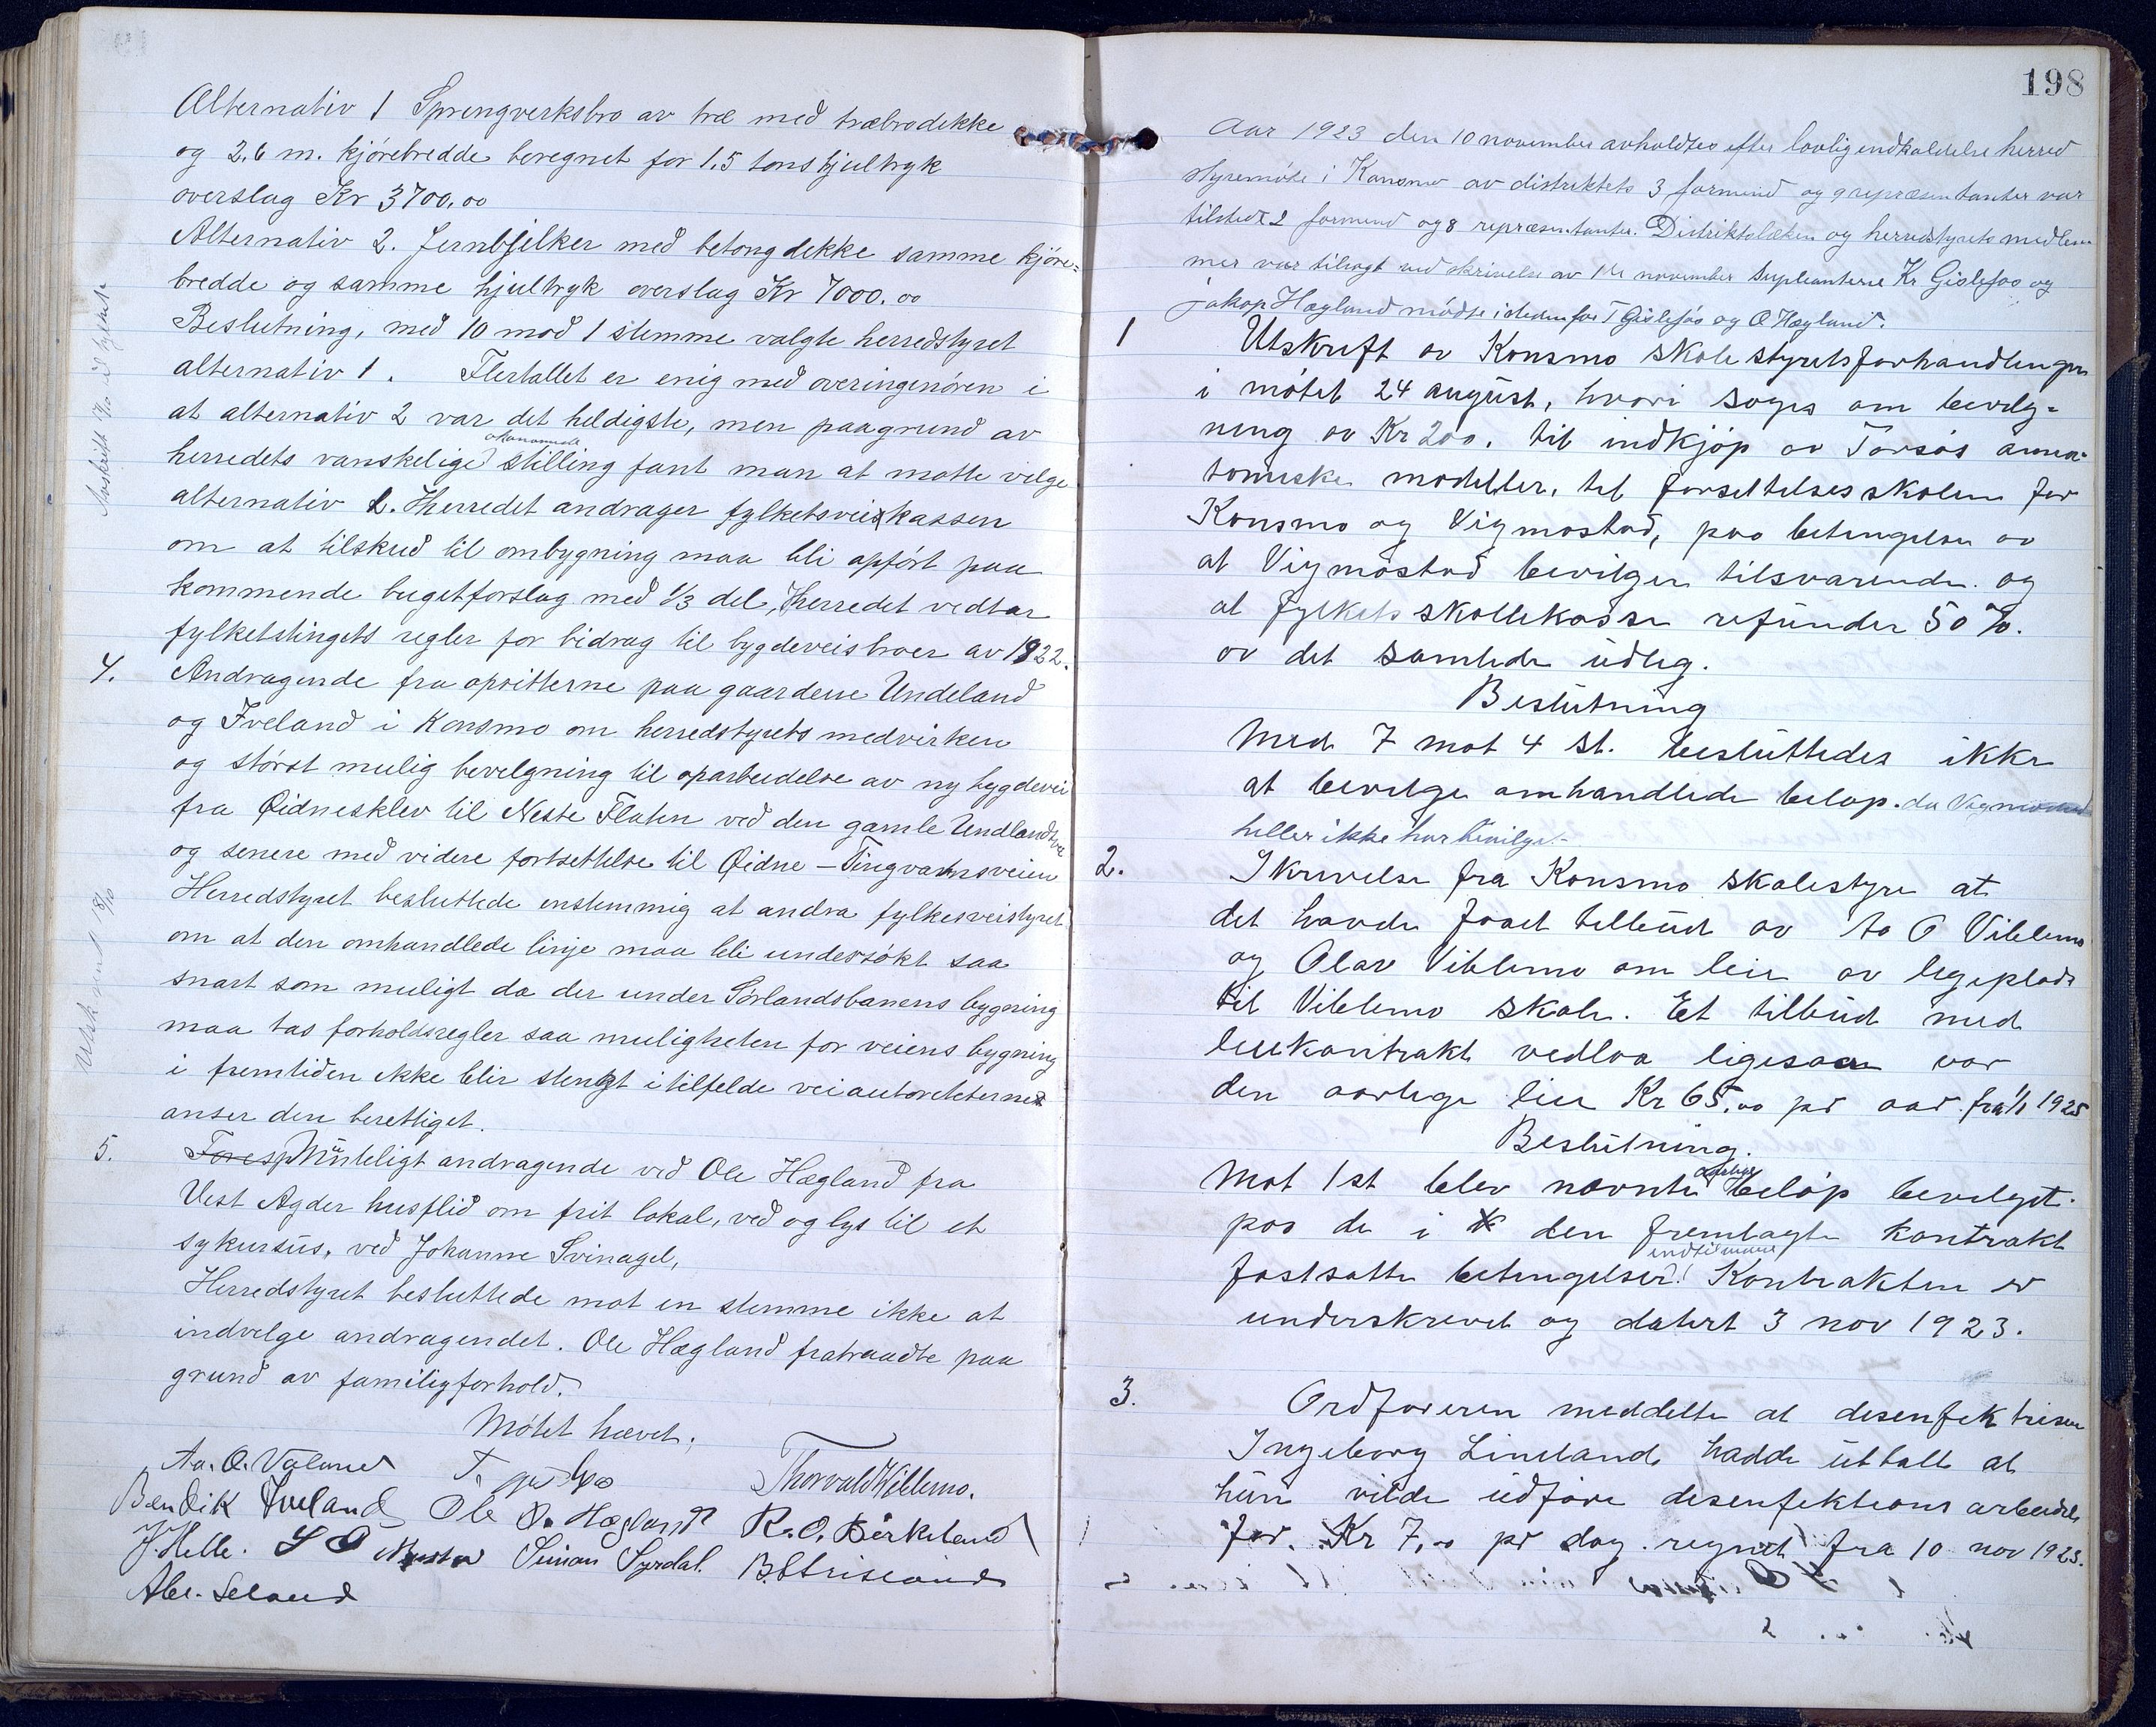 Alternativ 1 Sprengverksbro av træ med træbrodekke
og 2.6 m. kjørebredde beregnet for 1.5 tons hjultryk
overslag Kr 3700.00
Alternativ 2. Jernbjelker med betongdekke samme kjøre=
bredde og samme hjultryk overslag Kr 7000.00
Beslutning, med 10 mod 1 stemme valgte herredstyret
alternativ 1. Flertallet er enig med overingeniøren i
at alternativ 2 var det heldigste, men paagrund av
herredets vanskelige økonomiske stilling fant man at motte velge
alternativ 1. Herredet andrager fylketsveikassen
om at tilskud til ombygning maa bli opført paa
kommende bugetforslag med 1/3 del, Herredet vedtar
fylketstingets regler for bidrag til bygdeveisbroer av 1922.
4. Andragende fra opsitterne paa gaardene Undeland
og Iveland i Konsmo om herredstyrets medvirken
og størst mulig bevelgning til oparbeidelse av ny bygdevei
fra Øidnesklev til Neste Flaten ved den gamle Undlandsvei
og senere med videre fortsettelse til Øidne - Tingvatnsveien
Herredstyret besluttede enstemmig at andra fylkesveistyret
om at den omhandlede linje maa bli undersøkt saa
snart som muligt da der under Sørlandsbanens bygning
maa tas forholdsregler saa muligheten for veiens bygning
i fremtiden ikke blir stengt i tilfelde veiautoriteterne
anser den berettiget.
5. Foresp Muntligt andragende ved Ole Hægland fra
Vest Agder husflid om frit lokal, ved og lys til et
sykursus, ved Johanne Svinagel,
Herredstyret besluttede mot en stemme ikke at
indvelge andragendet. Ole Hægland fratraadte paa
grund av familjyforhold.
Møtet hævet.
Aa. O. Valand T. Gislefos Thorvald Viblemo.
Bendik Iveland Ole O. Hægland R. O. Birkeland
J. Helle. S O Simon Syrdal. B. Eriksland
Abr. Seland
198
Aar 1923 den 10 november avholdtes efter lovlig indkaldelse herred
styremøte i Konsmo av distriktets 3 formend og 9 repræsentanter var
tilstede 2 formend og 8 repræsentanter. Distriktslæken og herredstyrets medlem
mer var tilsagt ved skrivelse av 1ste november Supleanterne Kr. Gislefos og
jakop Hægland mødte isteden for T Gislefos og O Hægland.
1 Utskrift av Konsmo skolestyrets forhandlinger
i møtet 24 august, hvori søges om bevilg=
ning av Kr 200. til indkjøp av Torsøs anna=
tomiske modeller, til forsettelsesskolen for
Konsmo og Vigmostad, paa betingelse av
at Vigmostad bevilger tilsvarende og
at fylkets skollekasse refunder 50 %.
av det samlede udleg.
Beslutning
Med 7 mot 4 st. besluttedes ikke
at bevilge omhandlede beløp. da Vigmostad
heller ikke har bevilget.
2. Skrivelse fra Konsmo skolestyre at
det havde faaet tilbud av Aa O Viblemo
og Olav Viblemo om leie av legeplads
til Viblemo skole. Et tilbud med
leiekontrakt vedlaa ligesaa var
den aarlige leie Kr 65.00 pr aar fra 1/1 1925
Beslutning.
Mot 1 st blev nævnte aarlige beløp bevilget
paa de i den fremlagte kontrakt
fastsatte betingelser indtil videre. Kontrakten er
underskrevet og datert 3 nov 1923.
3. Ordføreren meddelte at desenfektrisen
Ingeborg Lineland hadde uttalt at
hun vilde udføre desenfektions arbeidet
for. Kr 7.00 pr dag. regnet fra 10 nov 1923.